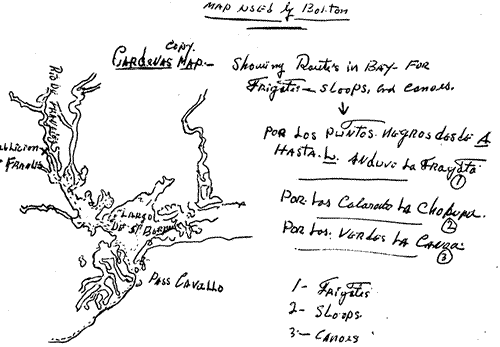 MAP USED by Bolton
COPY
CARDENAS MAP.—
Showing Routes in BAY- FOR
Frigates — SLOOPS, and CANOES.
POR LOS PUNTOS NEGROS DESDE A
HASTA L. ANDUVE LA
1
POR LAS LA
2
POR LOS VERDES LA
3
RIO DE
LAGO
DE Sn BERNARDO
PASS CAVALLO
1- FRIGATES
2- SLOOPS
3- CANOES